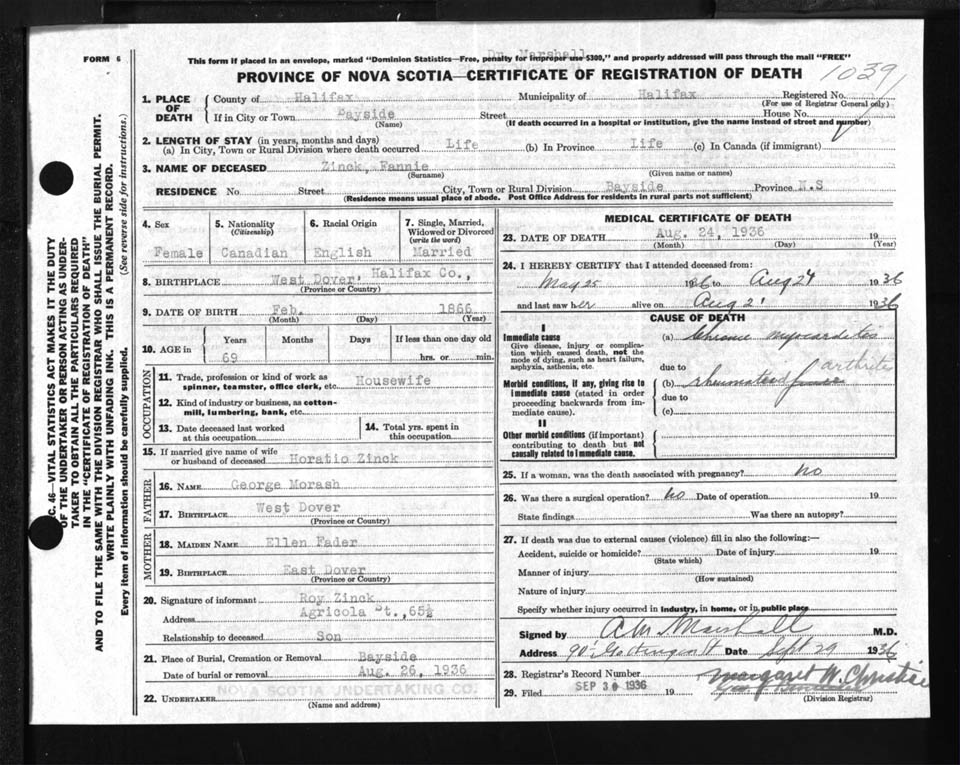 Dr. Marshall
FORM 6 This form if placed in an envelope, marked "Dominion Statistics—Free, penalty for improper use $300," and properly addressed will pass through the mail "FREE"
PROVINCE OF NOVA SCOTIA—CERTIFICATE OF REGISTRATION OF DEATH 1039
1. PLACE OF DEATH County of Halifax Municipality of Halifax Registered No.
(For use of Registrar General only)
If in City or Town Bayside Street House No.
(Name) (If death occurred in a hospital or institution, give the name instead of street and number)
2. LENGTH OF STAY (in years, months and days)
(a) In City, Town or Rural Division where death occurred Life (b) In Province Life (c) In Canada (if immigrant)
3. NAME OF DECEASED Zinck, Fannie
(Surname) (Given name or names)
RESIDENCE No Street City, Town or Rural Division Bayside Province N.S
(Residence means usual place of abode. Post Office Address for residents in rural parts not sufficient)
4. Sex 5. Nationality (Citizenship) 6. Racial Origin 7. Single, Married, Widowed or Divorced (write the word)
Female Canadian English Married
8. BIRTHPLACE West Dover, Halifax Co.,
(Province or Country)
9. DATE OF BIRTH Feb. 1866
(Month) (Day) (Year)
10. AGE in Years Months Days If less than one day old
69 hrs. or min.
OCCUPATION
11. Trade, profession or kind of work as spinner, teamster, office clerk, etc. Housewife
12. Kind of industry or business, as cotton-mill, lumbering, bank, etc.
13. Date deceased last worked at this occupation 14. Total yrs. spent in this occupation
15. If married give name of wife or husband of deceased Horatio Zinck
FATHER
16. NAME George Morash
17. BIRTHPLACE West Dover
(Province or Country)
MOTHER
18. MAIDEN NAME Ellen Fader
19. BIRTHPLACE East Dover
(Province or Country)
20. Signature of informant Roy Zinck
Address Agricola St., 65½
Relationship to deceased Son
21. Place of Burial, Cremation or Removal Bayside
Date of burial or removal Aug. 26, 1936
22. UNDERTAKER NOVA SCOTIA UNDERTAKING CO.
(Name and address)
MEDICAL CERTIFICATE OF DEATH
23. DATE OF DEATH Aug. 24, 1936 19
(Month) (Day) (Year)
24. I HEREBY CERTIFY that I attended deceased from:
May 25 1936 to Aug 24 1936
and last saw her alive on Aug 21 1936
CAUSE OF DEATH
I
Immediate cause
Give disease, injury or complication which caused death, not the mode of dying, such as heart failure, asphyxia, asthenia, etc.
(a) Chronic myocarditis
due to
Morbid conditions, if any, giving rise to immediate cause (stated in order proceeding backwards from immediate cause).
(b) rheumatoid arthritis
due to
(c)
II
Other morbid conditions (if important) contributing to death but not causally related to immediate cause.
25. If a woman, was the death associated with pregnancy? no
26. Was there a surgical operation? no Date of operation 19
State findings Was there an autopsy?
27. If death was due to external causes (violence) fill in also the following:—
Accident, suicide or homicide? Date of injury 19
(State which)
Manner of injury
(How sustained)
Nature of injury
Specify whether injury occurred in industry, in home, or in public place
Signed by A.M. Marshall M.D.
Address Date Sept 29 1936
28. Registrar's Record Number
29. Filed SEP 30 1936 19 Margaret W. Christie
(Division Registrar)
C. 46—VITAL STATISTICS ACT MAKES IT THE DUTY
OF THE UNDERTAKER OR PERSON ACTING AS UNDER-
TAKER TO OBTAIN ALL THE PARTICULARS REQUIRED
IN THE "CERTIFICATE OF REGISTRATION OF DEATH"
AND TO FILE THE SAME WITH THE DIVISION REGISTRAR WHO SHALL ISSUE THE BURIAL PERMIT.
WRITE PLAINLY WITH UNFADING INK. THIS IS A PERMANENT RECORD.
Every item of information should be carefully supplied. (See reverse side for instructions.)